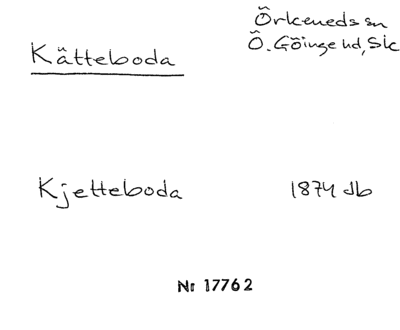 Örkeneds sn
Kätteboda
Ö. Göinge hd, Sk
Kjetteboda 1874 db
Nr 17762